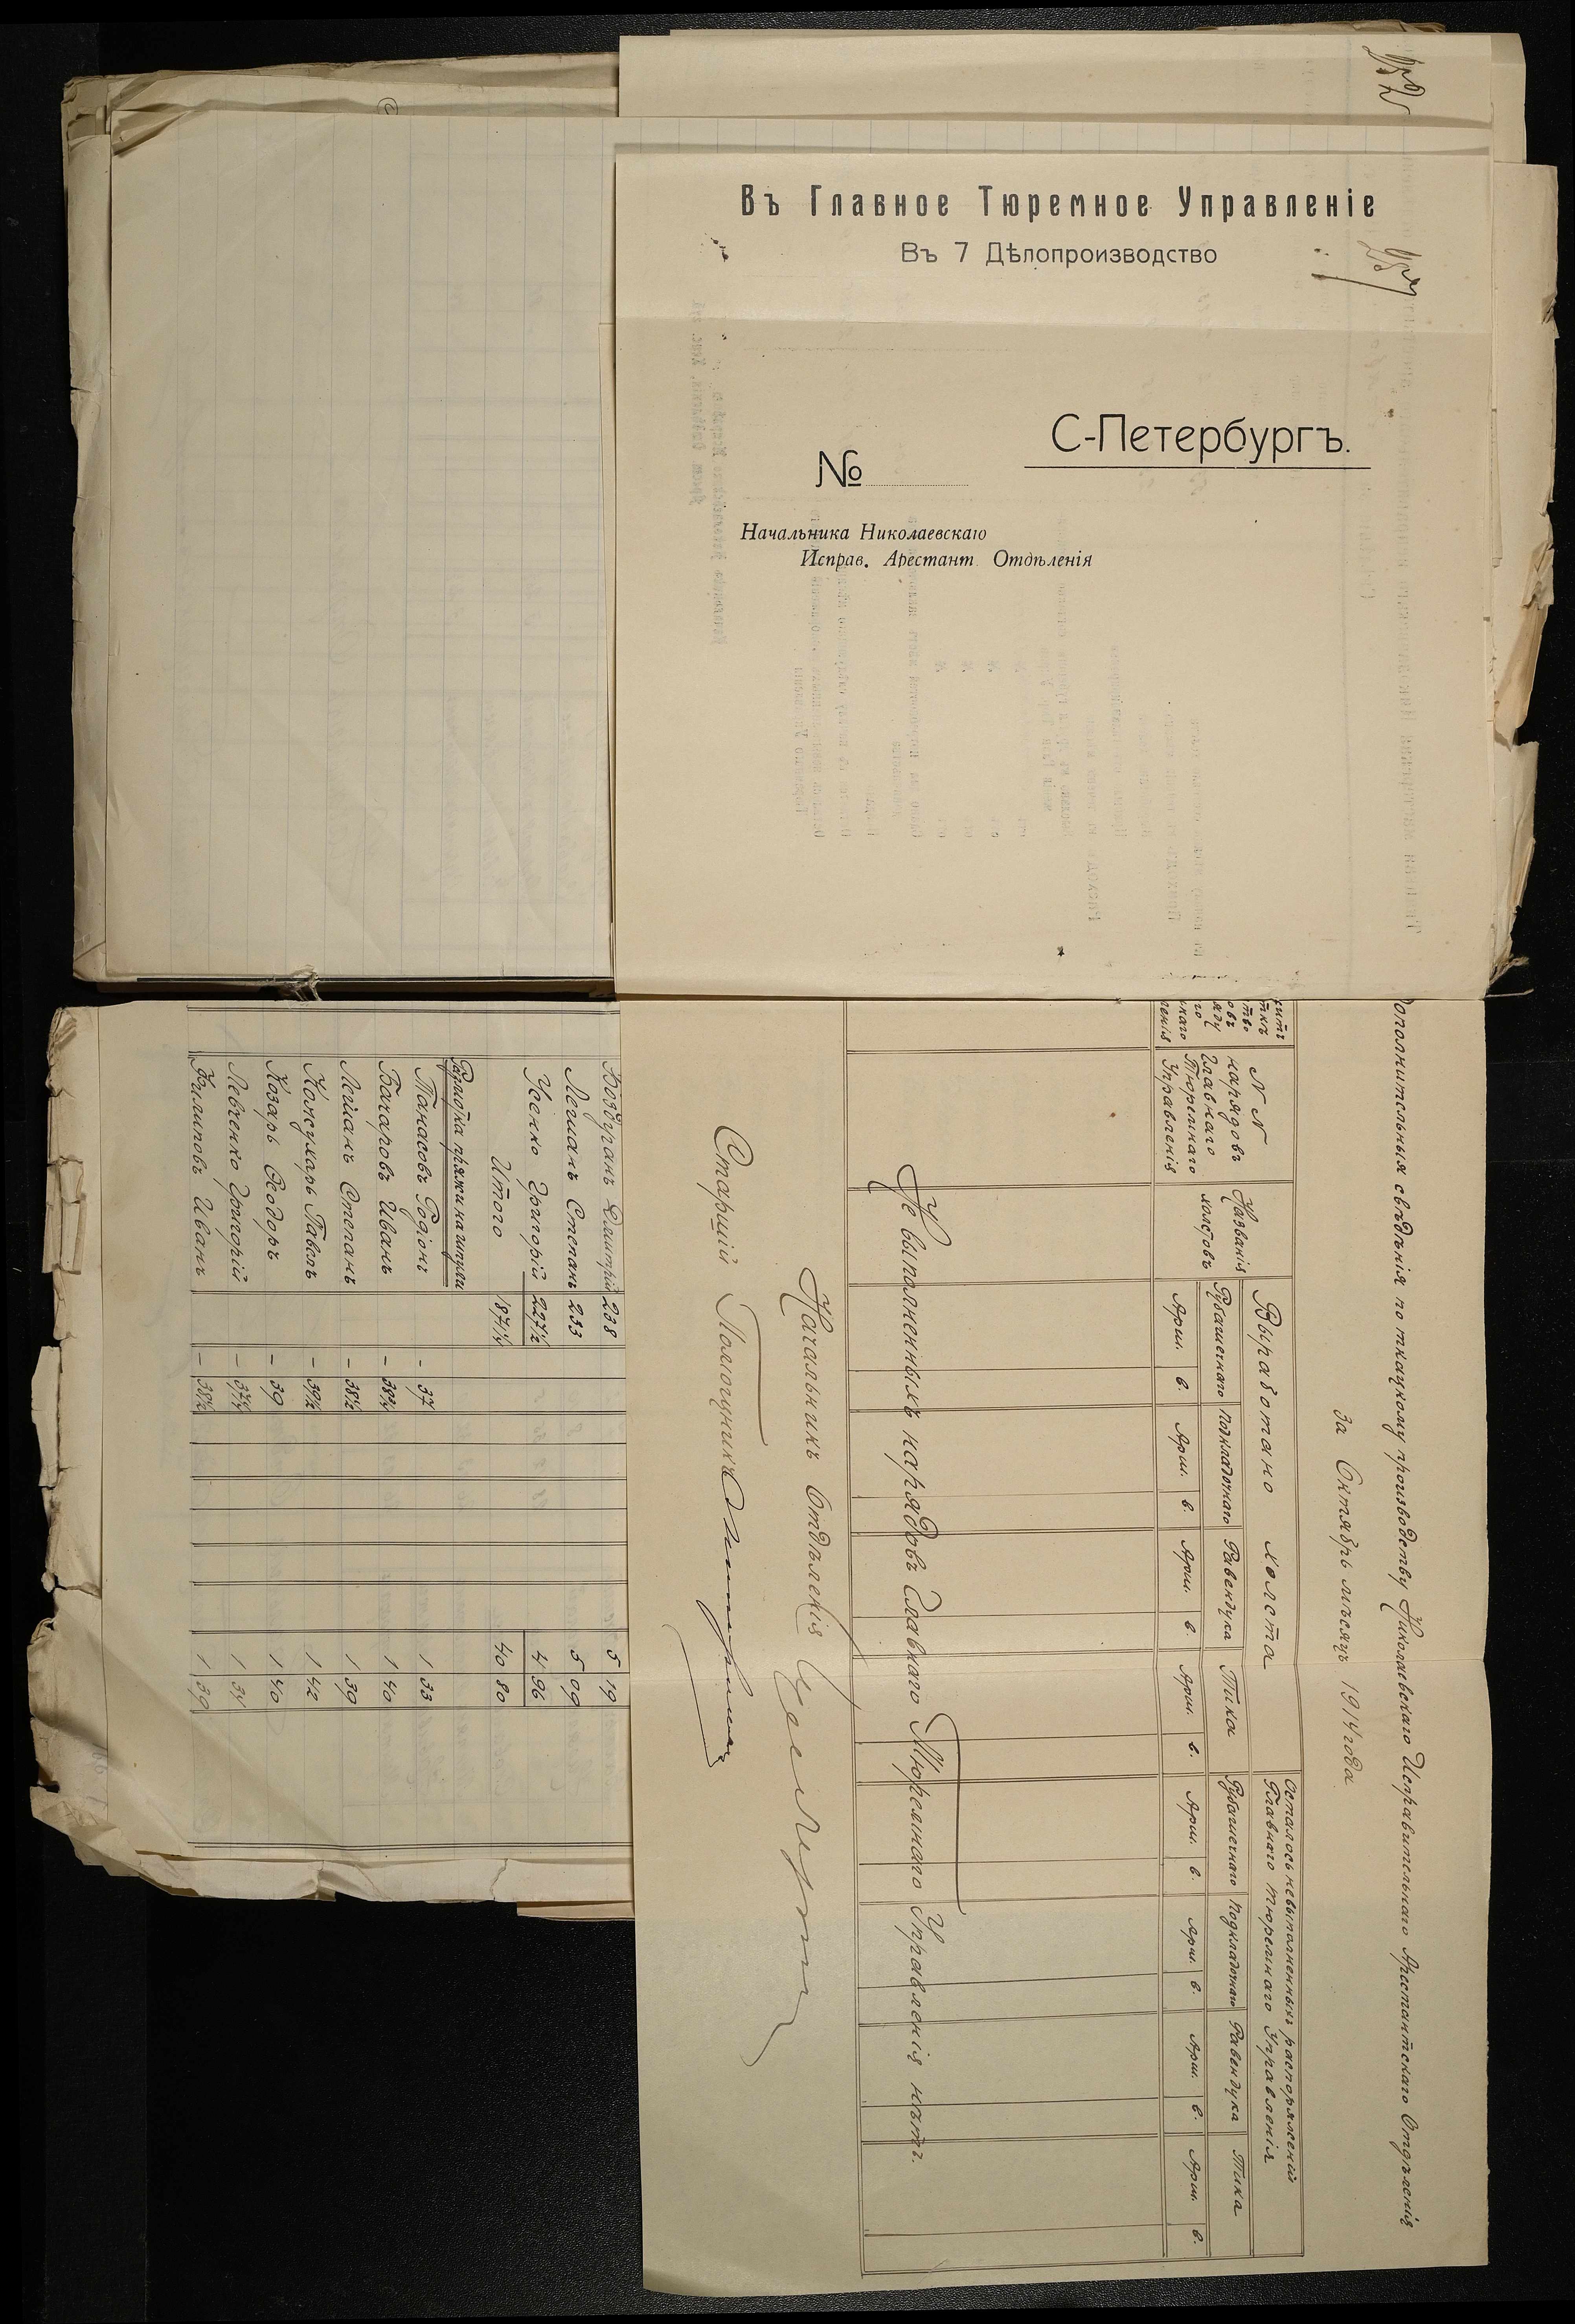 Въ Главное Тюремное Управленіе
Въ 7 Дѣлопроизводство
С-Петербургъ.
№
Начальника Николаевскаго
Исправ. Арестант. Отдѣленія
Дополнительныя свѣдѣнія по ткацкому производству Николаевскаго Исправительнаго Арестантскаго Отдѣленія
за Октябрь мѣсяцъ 1914 года
N N
нарядовъ
Главнаго
Тюремнаго
Управленія
Названія
холстовъ
Выработано холста
Рубашечнаго Подкладочнаго Равендука Тика
Арш. в. Арш. в. Арш. в. Арш. в.
Осталось невыполненныхъ распоряженій
Главнаго Тюремнаго Управленія
Рубашечнаго Подкладочнаго Равендука Тика
Арш. в. Арш. в. Арш. в. Арш. в.
Не выполненныхъ нарядовъ Главнаго Тюремнаго Управленія нѣтъ.
Начальникъ Отдѣленія
Старшій Помощникъ
Дмитрій 238 5 19
Степанъ 233 5 09
Усенко Григорій 227½ 4 96
Итого 1871¼ 40 80
Размотка пряжи на шпули
Танасовъ Родіонъ - 37 1 33
Бачаровъ Иванъ - 38¾ 1 40
Лешанъ Степанъ - 38½ 1 39
Павелъ - 39½ 1 42
Козарь Ѳеодоръ - 39 1 40
Левченко Григорій - 37¼ 1 34
Филиповъ Иванъ - 38½ 1 39